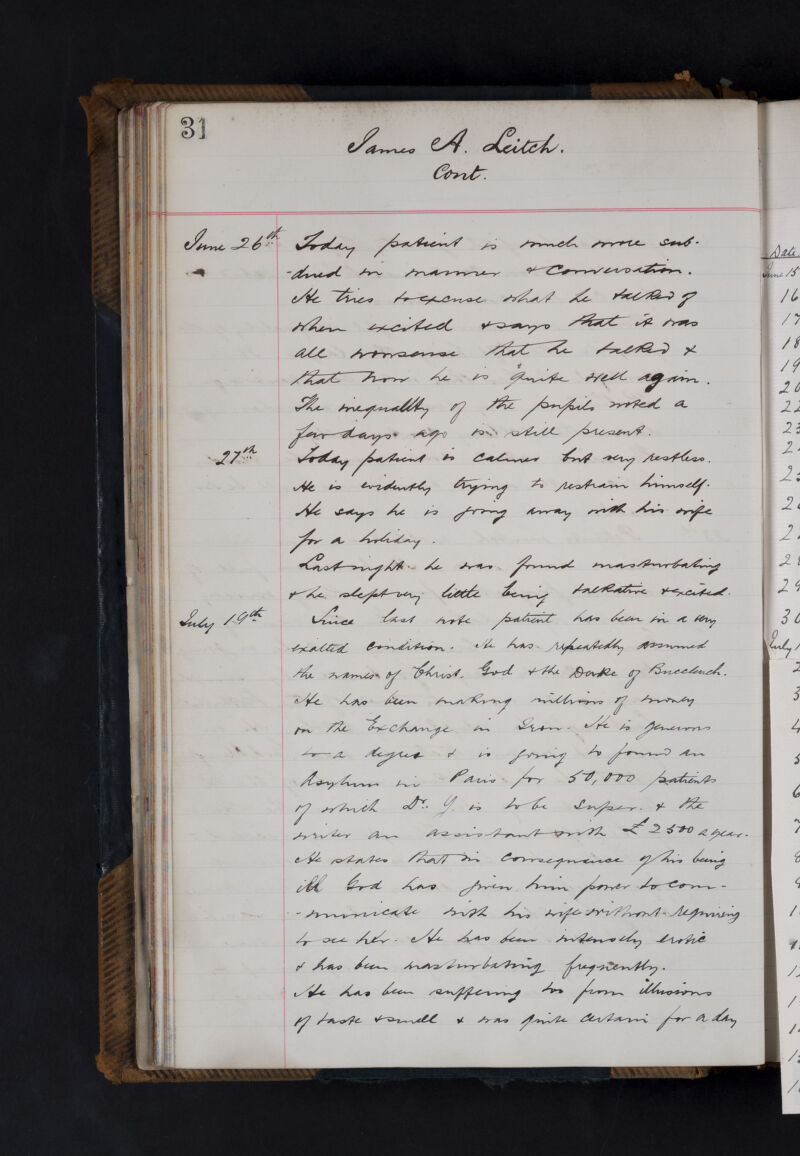 31
James A. Leitch.
Cont.
June 26th Today patient is much more sub-
-dued in manner & conversation.
He tries to excuse what he talked of
when excited & says that it was
all nonsense that he talked &
that now he is quite well again.
The inequality of the pupils noted a
few days ago is still present.
27th Today patient is calmer but very restless.
He is evidently trying to restrain himself.
He says he is going away with his wife
for a holiday.
Last night he was found masturbating
& he slept very little being talkative & excited.
July 19th Since last note patient has been in a very
exalted condition. He has repeatedly assumed
the names of Christ. God & the Duke of Buccleuch.
He has been making millions of money
on the Exchange in Iron. He is generous
to a degree & is going to found an
Asylum in Paris for 50,000 patients
of which Dr. Y. is to be Super. & the
writer an assistant with £2500 a year.
He states that in consequence of his being
ill God has given him power to com-
-municate with his wife without requiring
to see her. He has been intensely erotic
& has been masturbating frequently.
He has been suffering too from illusions
of taste & smell & was quite certain for a day
Date
June 15
16
17
18
19
20
22
23
29
30
July 1
2
3
4
5
6
7